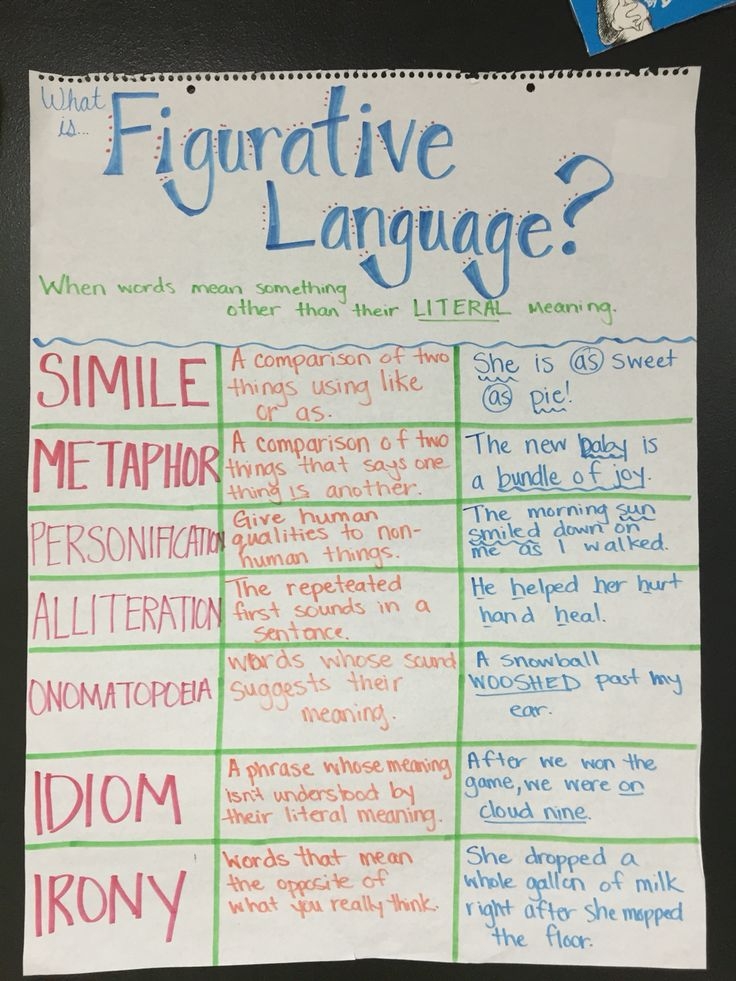 What
is...
Figurative
Language?
When words mean something
other than their LITERAL meaning.
SIMILE
A comparison of two
things using like
or as.
She is as sweet
as pie!
METAPHOR
A comparison of two
things that says one
thing is another.
The new baby is
a bundle of joy.
PERSONIFICATION
Give human
qualities to non-
human things.
The morning sun
smiled down on
me as I walked.
ALLITERATION
The repeteated
first sounds in a
sentence.
He helped her hurt
hand heal.
ONOMATOPOEIA
words whose sound
suggests their
meaning.
A snowball
WOOSHED past my
ear.
IDIOM
A phrase whose meaning
isn't understood by
their literal meaning.
After we won the
game, we were on
cloud nine.
IRONY
Words that mean
the opposite of
what you really think.
She dropped a
whole gallon of milk
right after she mopped
the floor.